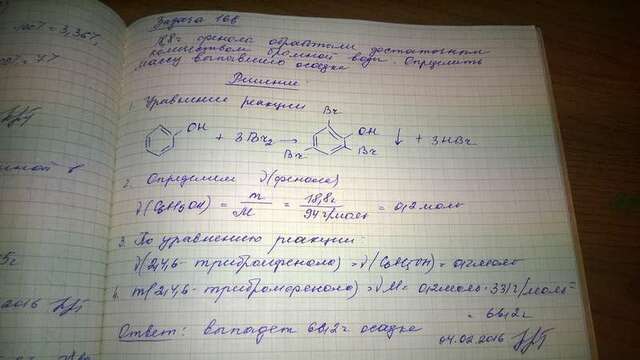 Задача 166
18,8г фенола обработали достаточным
количеством бромной воды. Определить
массу выпавшего осадка
Решение:
1. Уравнение реакции
OH + 3Br₂ → Br OH Br Br ↓ + 3HBr
2. Определяем ν(фенола)
ν(C₆H₅OH) = m/M = 18,8г/94 г/моль = 0,2 моль
3. По уравнению реакции:
ν(2,4,6 - трибромфенола) = ν(C₆H₅OH) = 0,2 моль
4. m(2,4,6 - трибромфенола) = νM = 0,2 моль · 331 г/моль =
= 66,2 г
Ответ: выпадет 66,2 г осадка
04.02.2016
= 3,36г,
2016